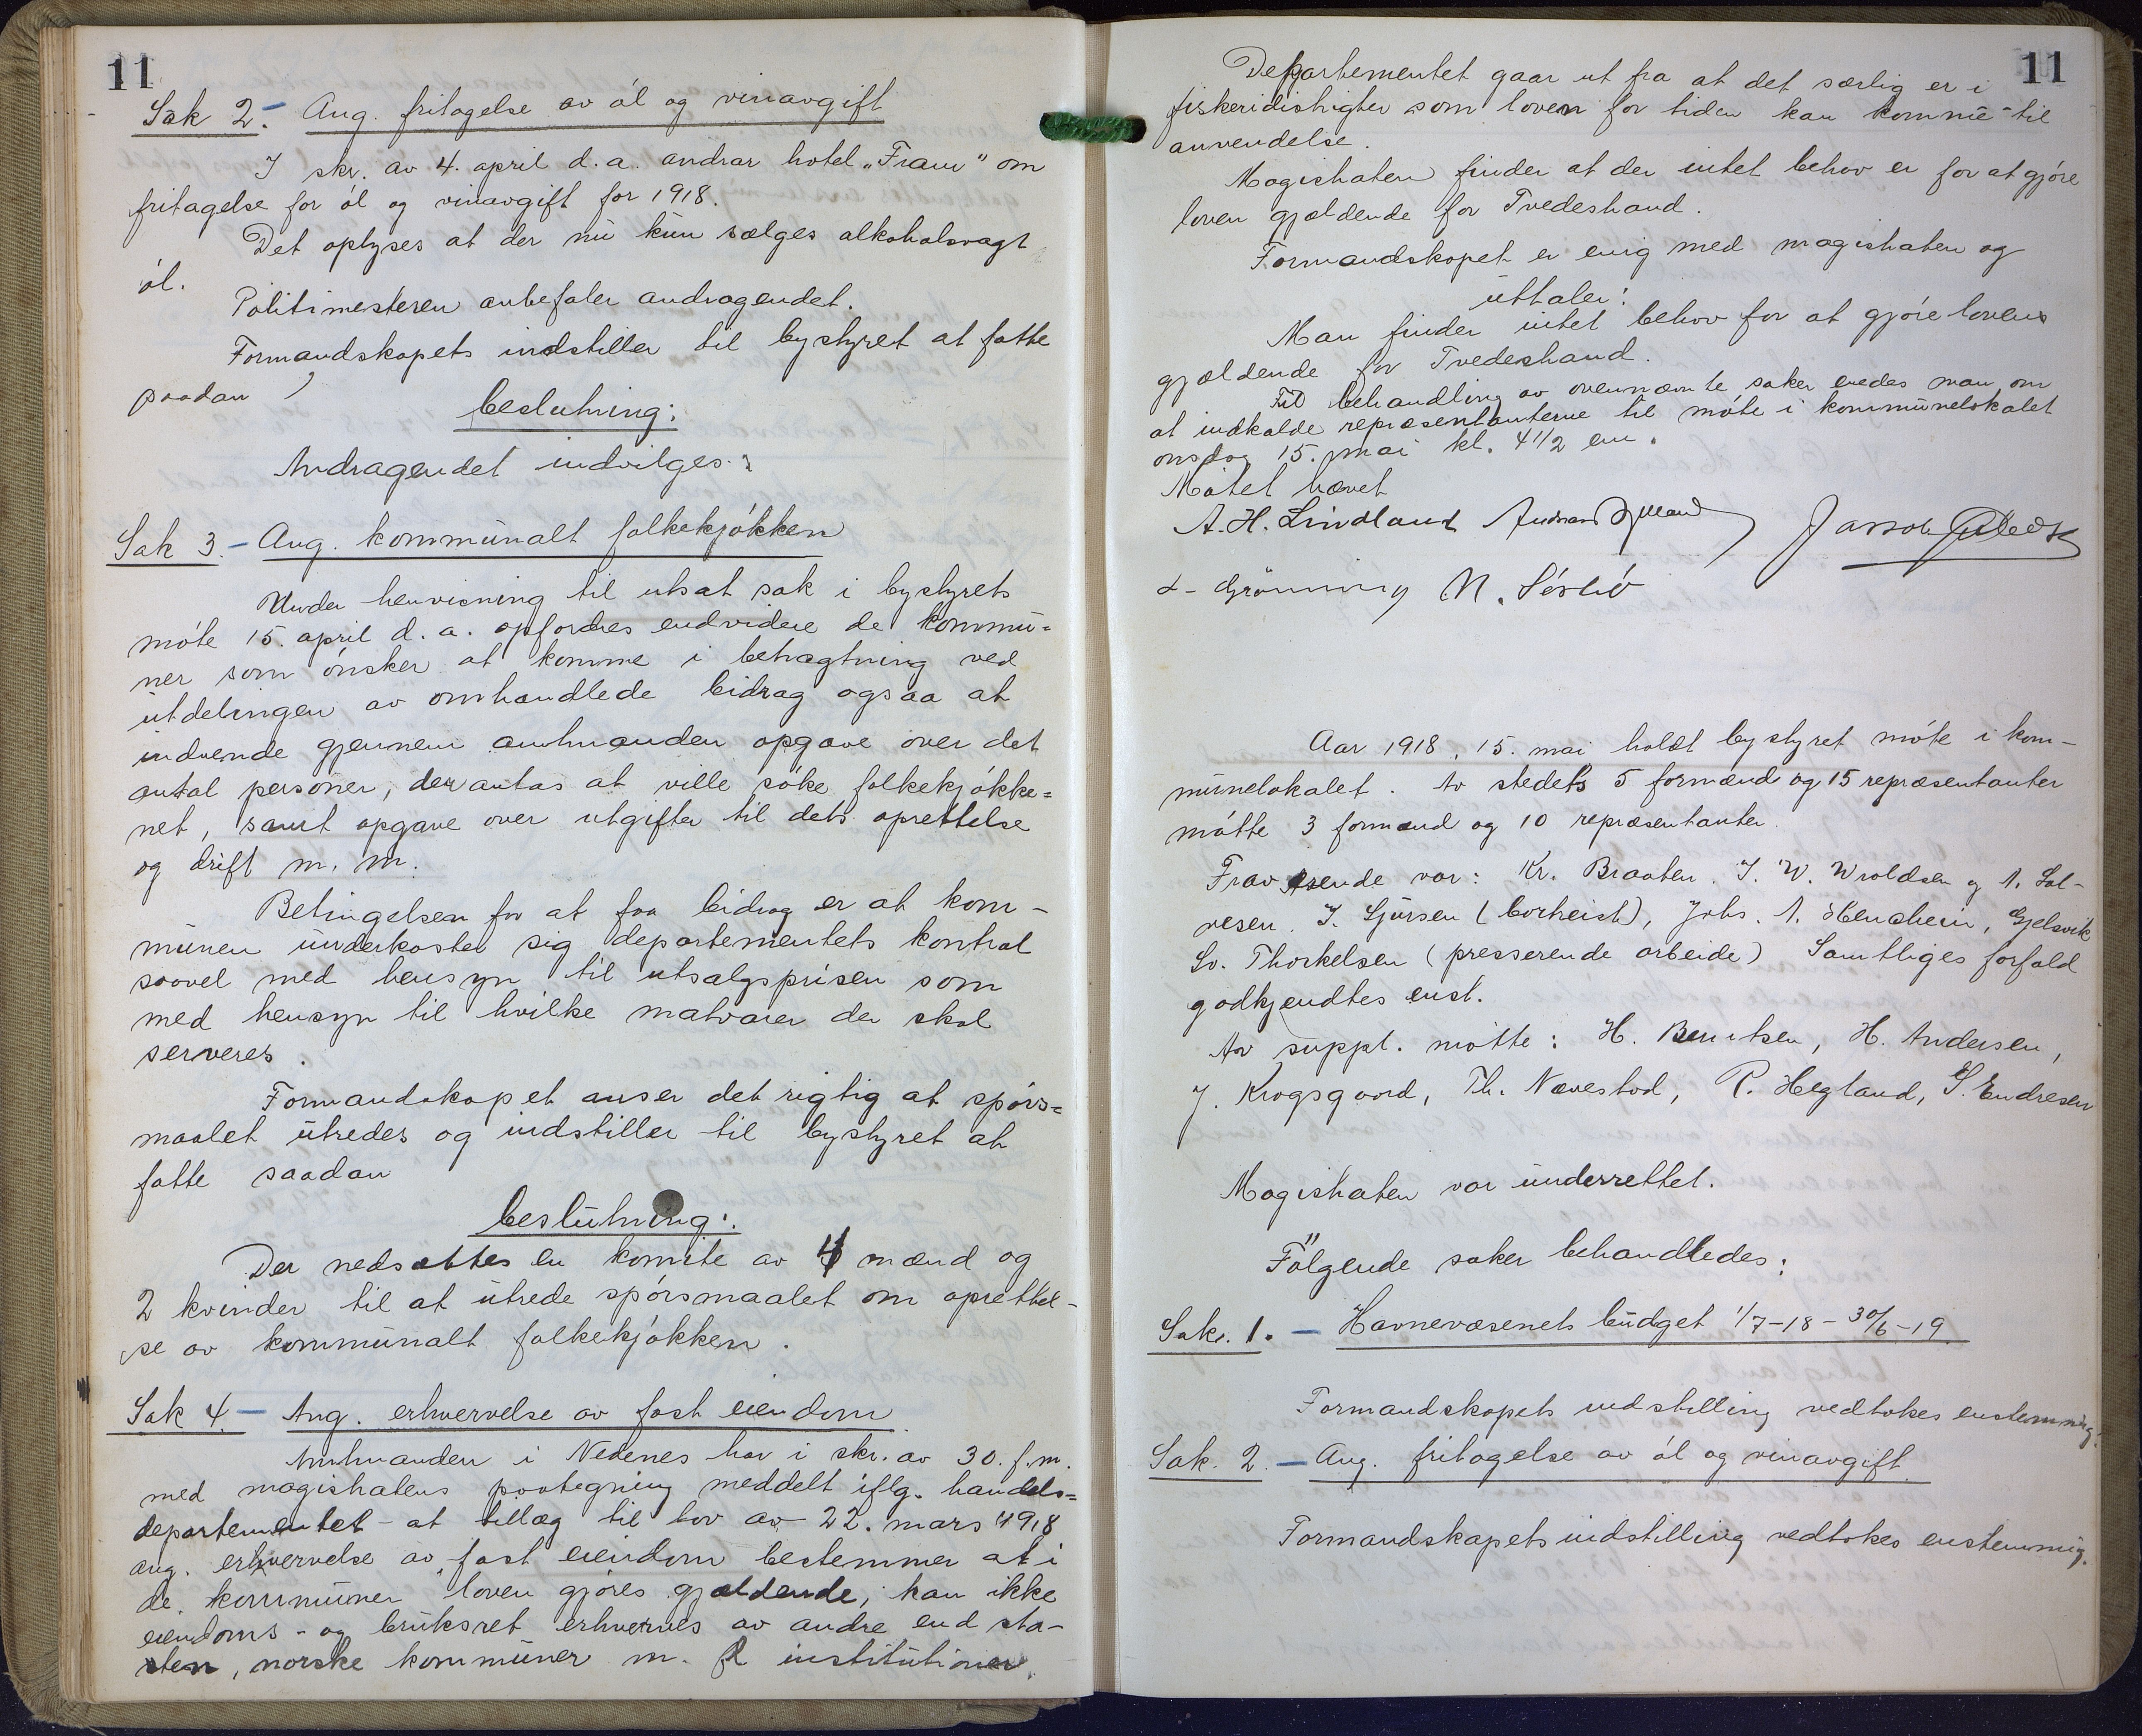 11
Sak 2. – Ang. fritagelse av øl og vinavgift
I skr. av 4. april d. a. andrar hotel „Fram" om
fritagelse for øl og vinavgift for 1918.
Det oplyses at der nu kun sælges alkoholsvagt
øl.
Politimesteren anbefaler andragendet.
Formandskapets indstiller til bystyret at fatte
saadan
beslutning:
Andragendet indvilges.
Sak 3. – Ang. kommunalt folkekjøkken
Under henvisning til utsat sak i bystyrets
møte 15. april d. a. opfordres endvidere de kommu=
ner som ønsker at komme i betragtning ved
utdelingen av omhandlede bidrag ogsaa at
indsende gjennem amtmanden opgave over det
antal personer, der antas at ville søke folkekjøkke=
net, samt opgave over utgifter til dets oprettelse
og drift m. m.
Betingelsen for at faa bidrag er at kom-
munen underkaster sig departementets kontrol
saavel med hensyn til utsalgsprisen som
med hensyn til hvilke matvarer der skal
serveres.
Formandskapet anser det rigtig at spørs=
maalet utredes og indstiller til bystyret at
fatte saadan
beslutning:
Der nedsættes en komite av 4 mænd og
2 kvinder til at utrede spørsmaalet om oprettel-
se av kommunalt folkekjøkken.
Sak 4. – Ang. erhvervelse av fast eiendom
Amtmanden i Nedenes har i skr. av 30. f. m.
med magistratens paategning meddelt iflg. handels=
departementet – at tillæg til lov av 22. mars 1918
ang. erhvervelse av fast eiendom bestemmer at i
de kommuner loven gjøres gjældende, kan ikke
eiendoms- og bruksret erhverves av andre end sta-
ten, norske kommuner m. fl institutioner.
11
Departementet gaar ut fra at det særlig er i
fiskeridistrigter som loven for tiden kan komme til
anvendelse.
Magistraten finder at der intet behov er for at gjøre
loven gjældende for Tvedestrand.
Formandskapet er enig med magistraten og
uttaler:
Man finder intet behov for at gjøre lovens
gjældende for Tvedestrand.
Til behandling av ovennævnte saker enedes man om
at indkalde repræsentanterne til møte i kommunelokalet
onsdag 15. mai kl. 4 1/2 em.
Møtet hævet
A. H. Lindland
Grønning
Aar 1918, 15. mai holdt bystyret møte i kom-
munelokalet. Av stedets 5 formænd og 15 repræsentanter
møtte 3 formænd og 10 repræsentanter
Fraværende var: Kr. Braaten, J. W. Wroldsen og A. Sal-
vesen. J. Sjursen (bortreist), Johs. A. Henchein, Gjelsvik
Sv. Thorkelsen (presserende arbeide) Samtliges forfald
godkjendtes enst.
Av suppl. møtte: H. Berntsen, H. Andersen,
J. Krogsgaard, Th. Nævestad, P. Hegland, S. Endresen
Magistraten var underrettet.
Følgende saker behandledes:
Sak. 1. – Havnevæsenets budget 1/7-18 – 30/6-19.
Formandskapets indstilling vedtokes enstemmig.
Sak. 2. – Ang. fritagelse av øl og vinavgift.
Formandskapets indstilling vedtokes enstemmig.